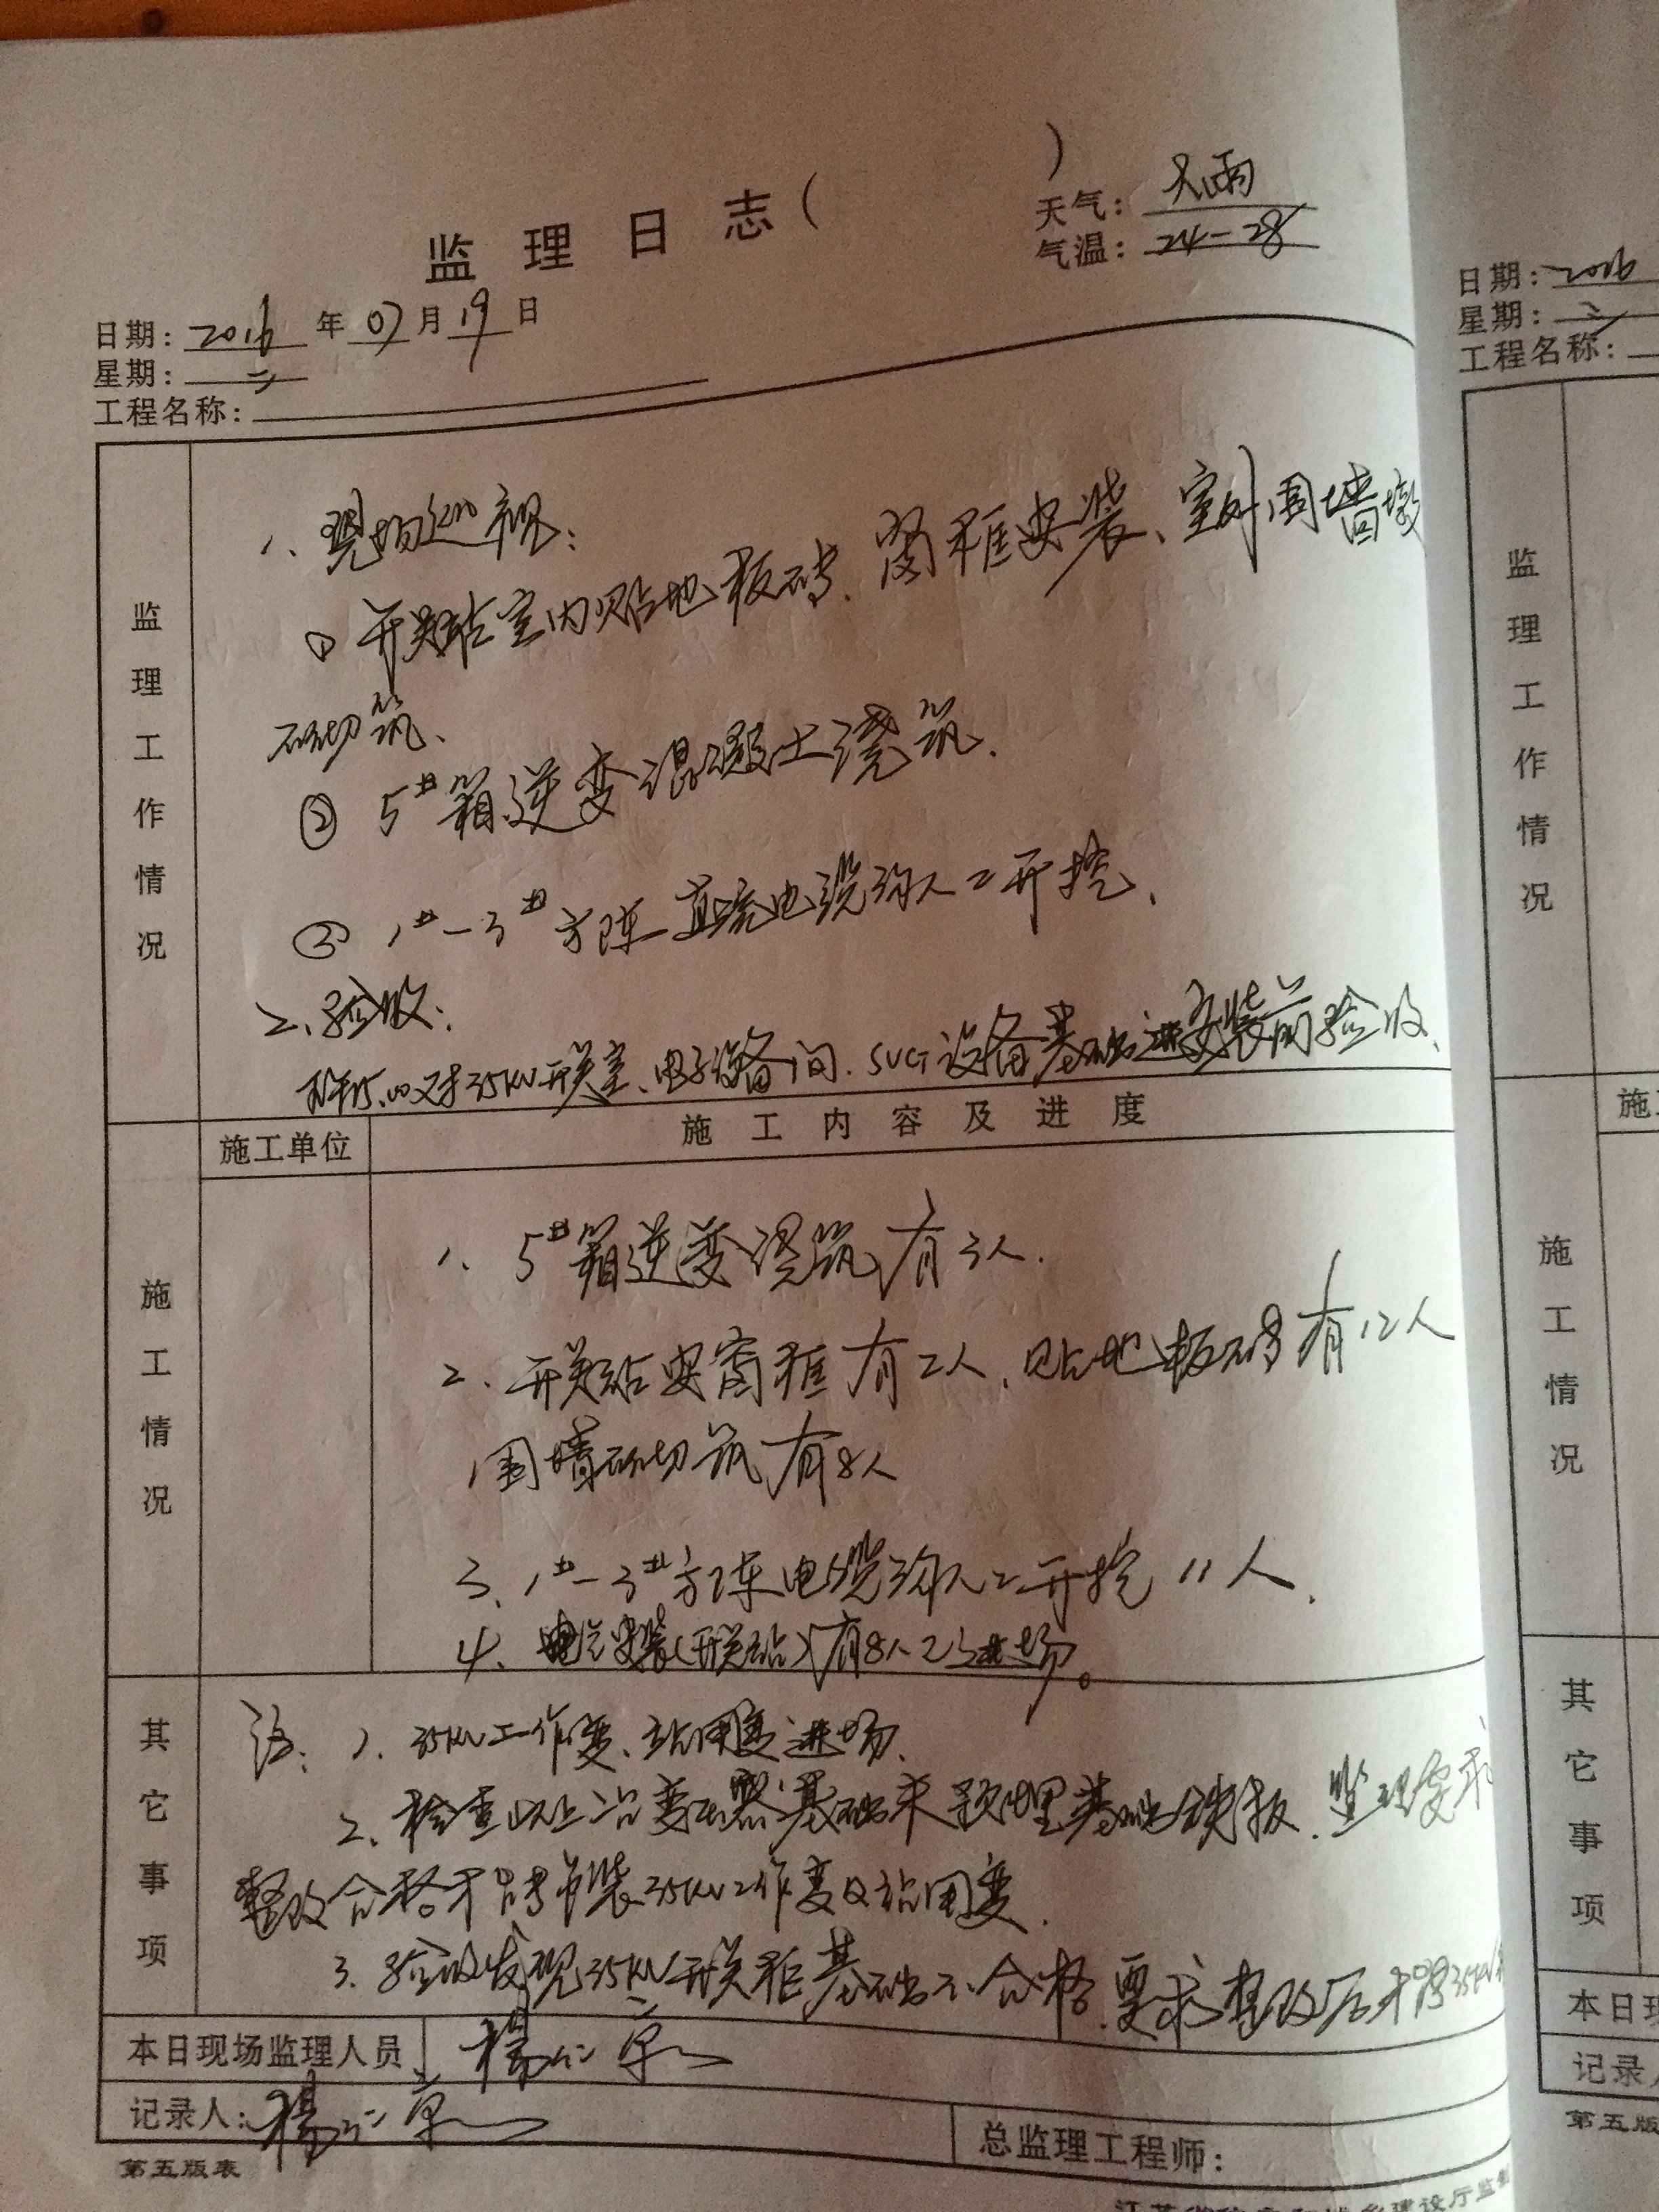 监理日志( )
天气: 大雨
气温: 24-28
日期: 2016 年 07 月 19 日
星期: 二
工程名称:
监理工作情况
1、现场巡视:
① 开关站室内贴地板砖、窗框安装、室外围墙墩
砌筑、
② 5#箱逆变混凝土浇筑.
③ 1#-3#方阵直流电缆沟人工开挖、
2、验收:
15:00对35KV开关室、电子设备间、SVG设备基础进安装前验收、
施工单位 施工内容及进度
施工情况
1、5#箱逆变浇筑有3人.
2、开关站安窗框有2人、贴地板砖有12人
围墙砌筑有8人
3、1#-3#方阵电缆沟人工开挖11人.
4、电气安装(开关站)有8人已进场。
其它事项
注: 1、35KV工作变、站用变进场、
2、检查以上二台变压器基础未预埋基础铁板、监理要求
整改合格才能吊装35KV工作变及站用变.
3、验收发现35KV开关柜基础不合格、要求整改后才能35KV
本日现场监理人员 杨
记录人: 杨
总监理工程师:
第五版表
建设厅监制
日期: 2016
星期: 三
工程名称:
监理工作情况
施工
施工情况
其它事项
本日现
记录人
第五版